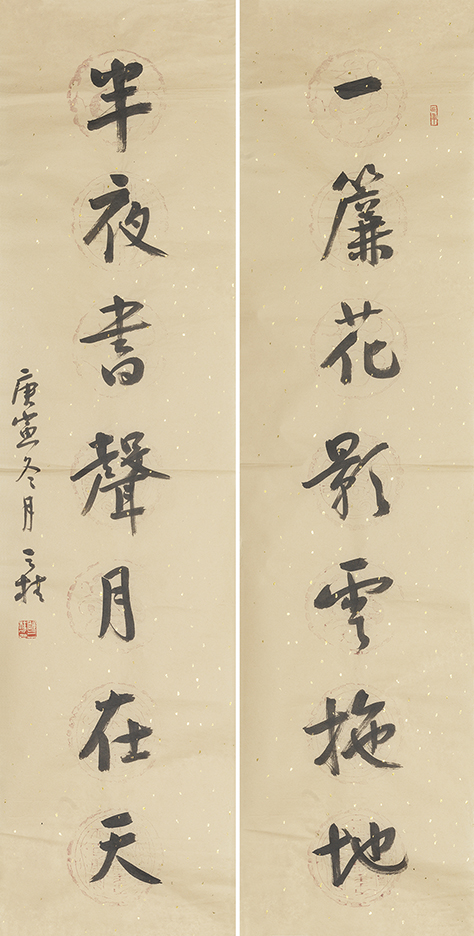 一簾花影雲拖地
半夜書聲月在天
庚寅冬月